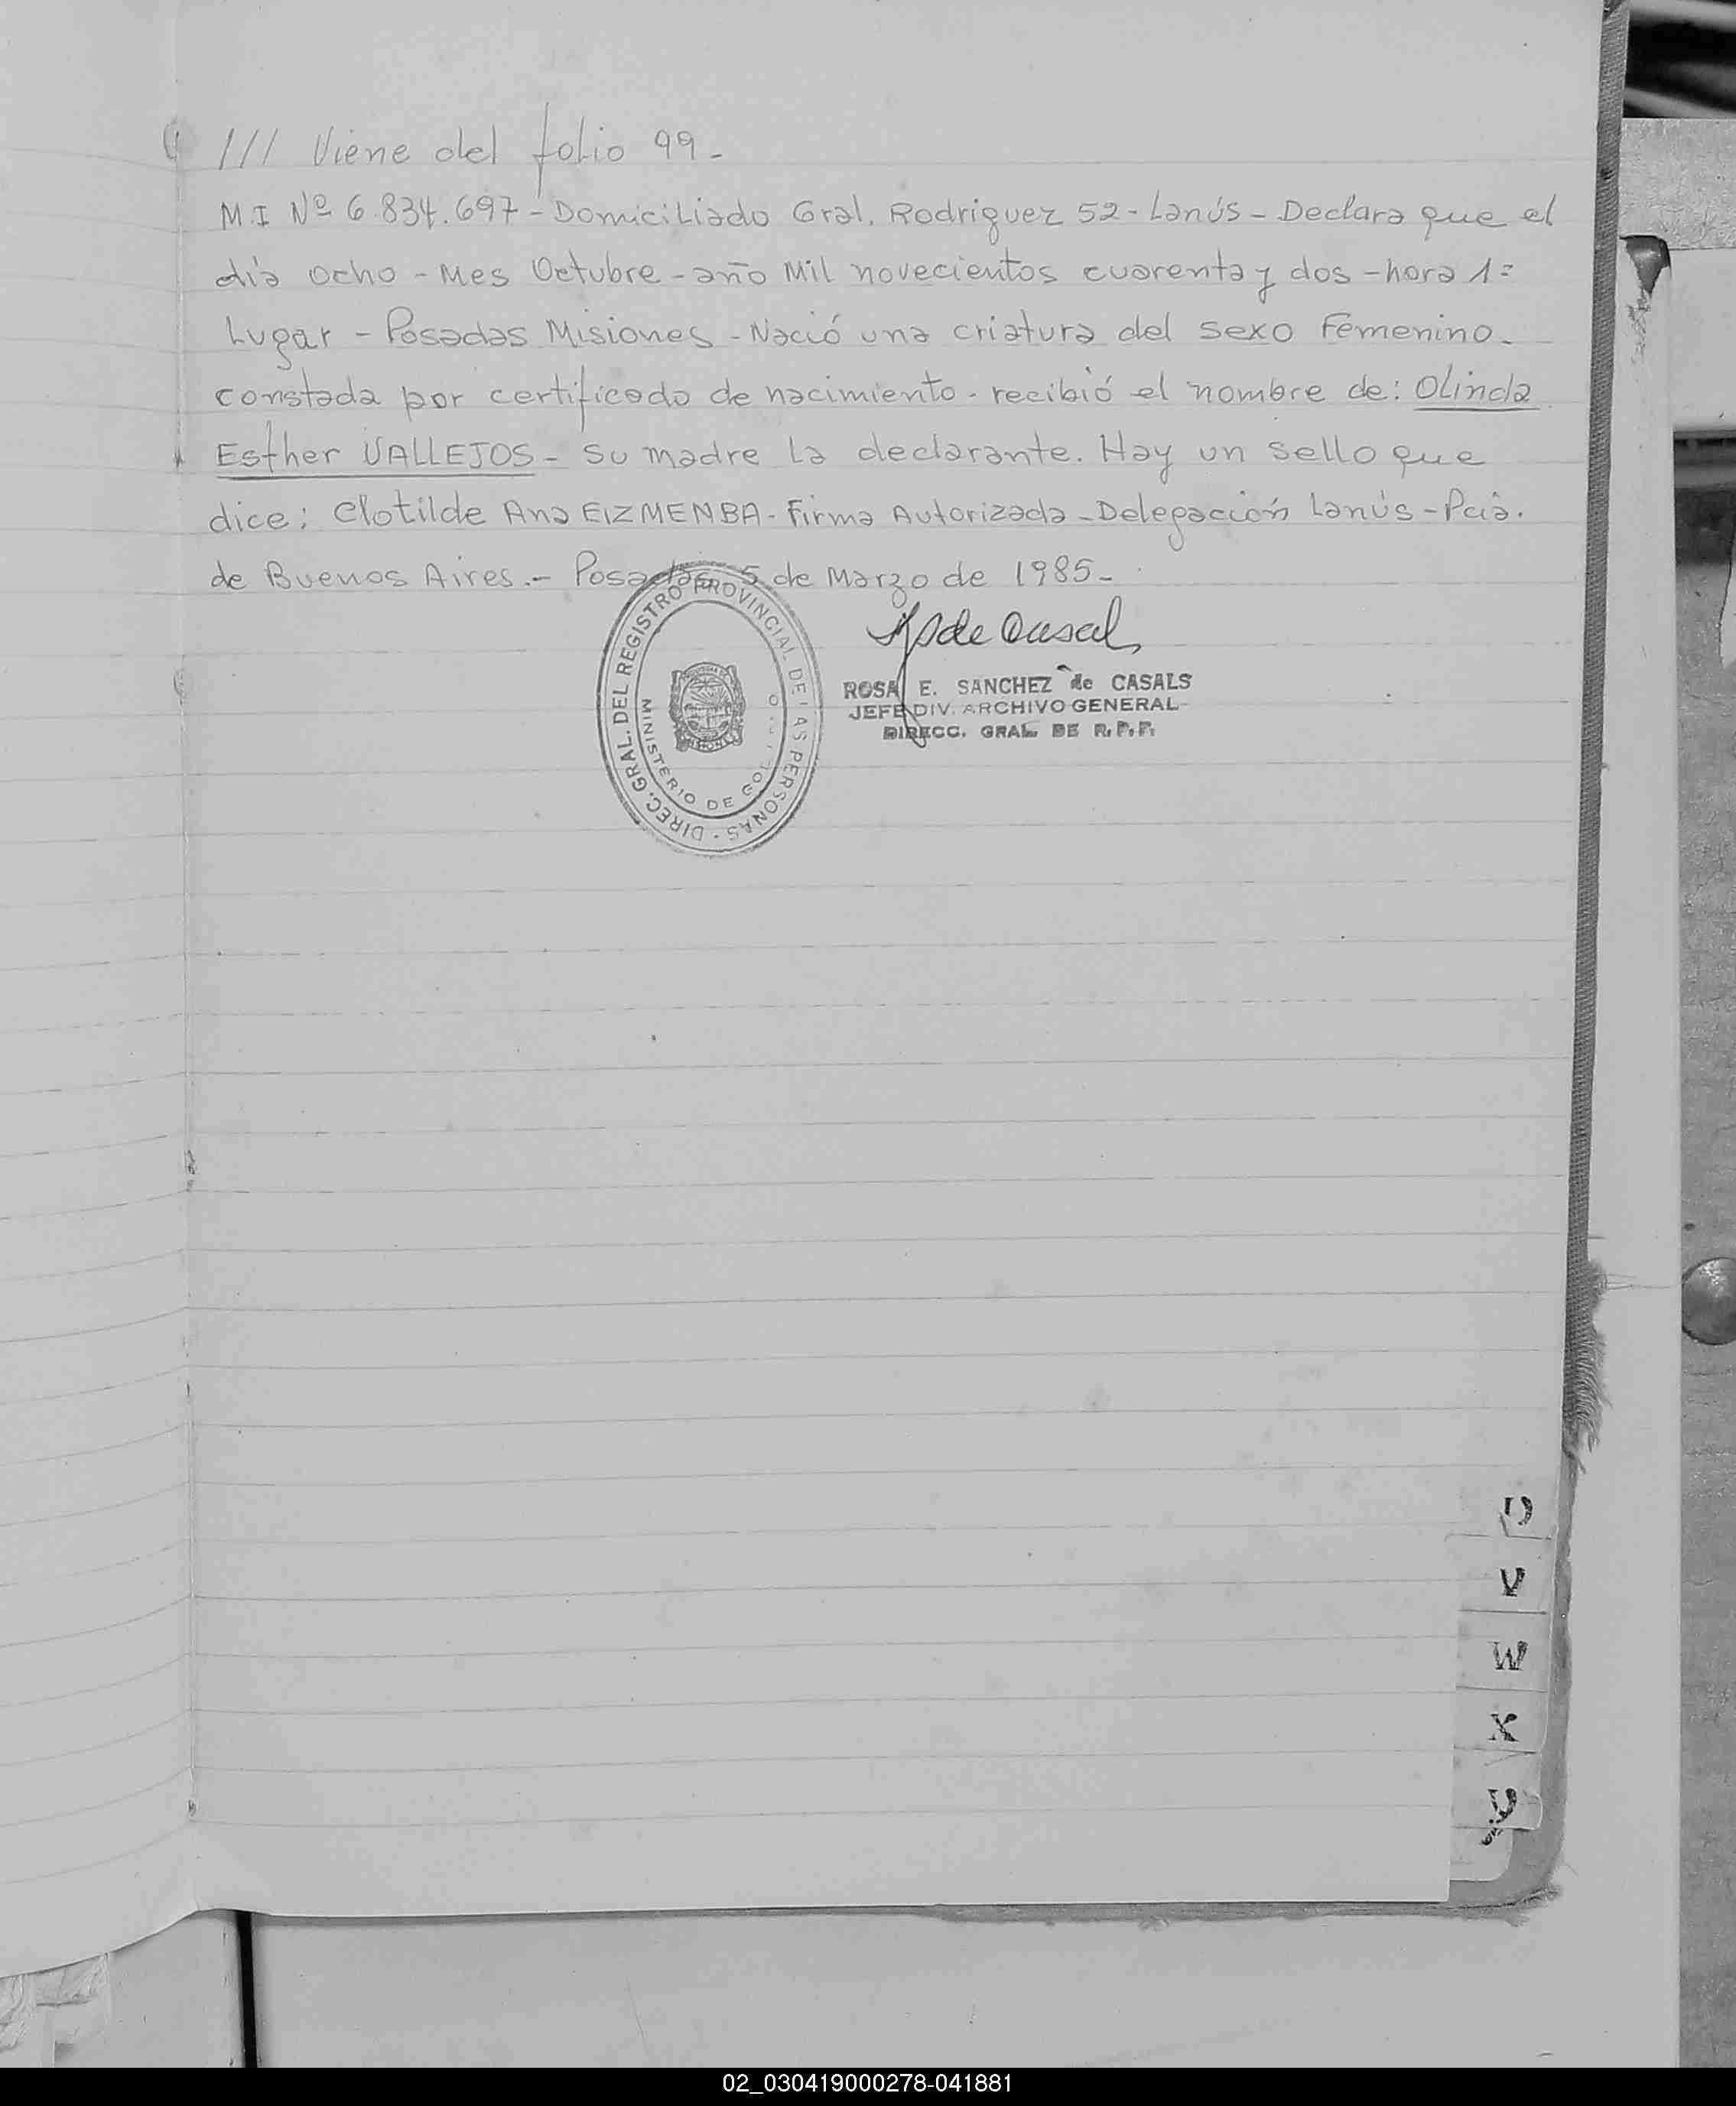 /// Viene del folio 99-
M.I Nº 6.834.697- Domiciliado Gral. Rodriguez 52- Lanús- Declara que el
día ocho - Mes Octubre - año Mil novecientos cuarenta y dos - hora 1=
Lugar - Posadas Misiones - Nació una criatura del sexo Femenino-
constada por certificado de nacimiento - recibió el nombre de: Olinda
Esther VALLEJOS - Su madre la declarante. Hay un sello que
dice: Clotilde Ana EIZMENBA - Firma Autorizada - Delegación Lanús - Pcia.
de Buenos Aires.- Posadas, 5 de Marzo de 1985-
DIREC. GRAL. DEL REGISTRO PROVINCIAL DE LAS PERSONAS
MINISTERIO DE
ROSA E. SANCHEZ de CASALS
JEFE DIV. ARCHIVO GENERAL
DIRECC. GRAL. DE R.P.P.
V
W
X
Y
02_030419000278-041881